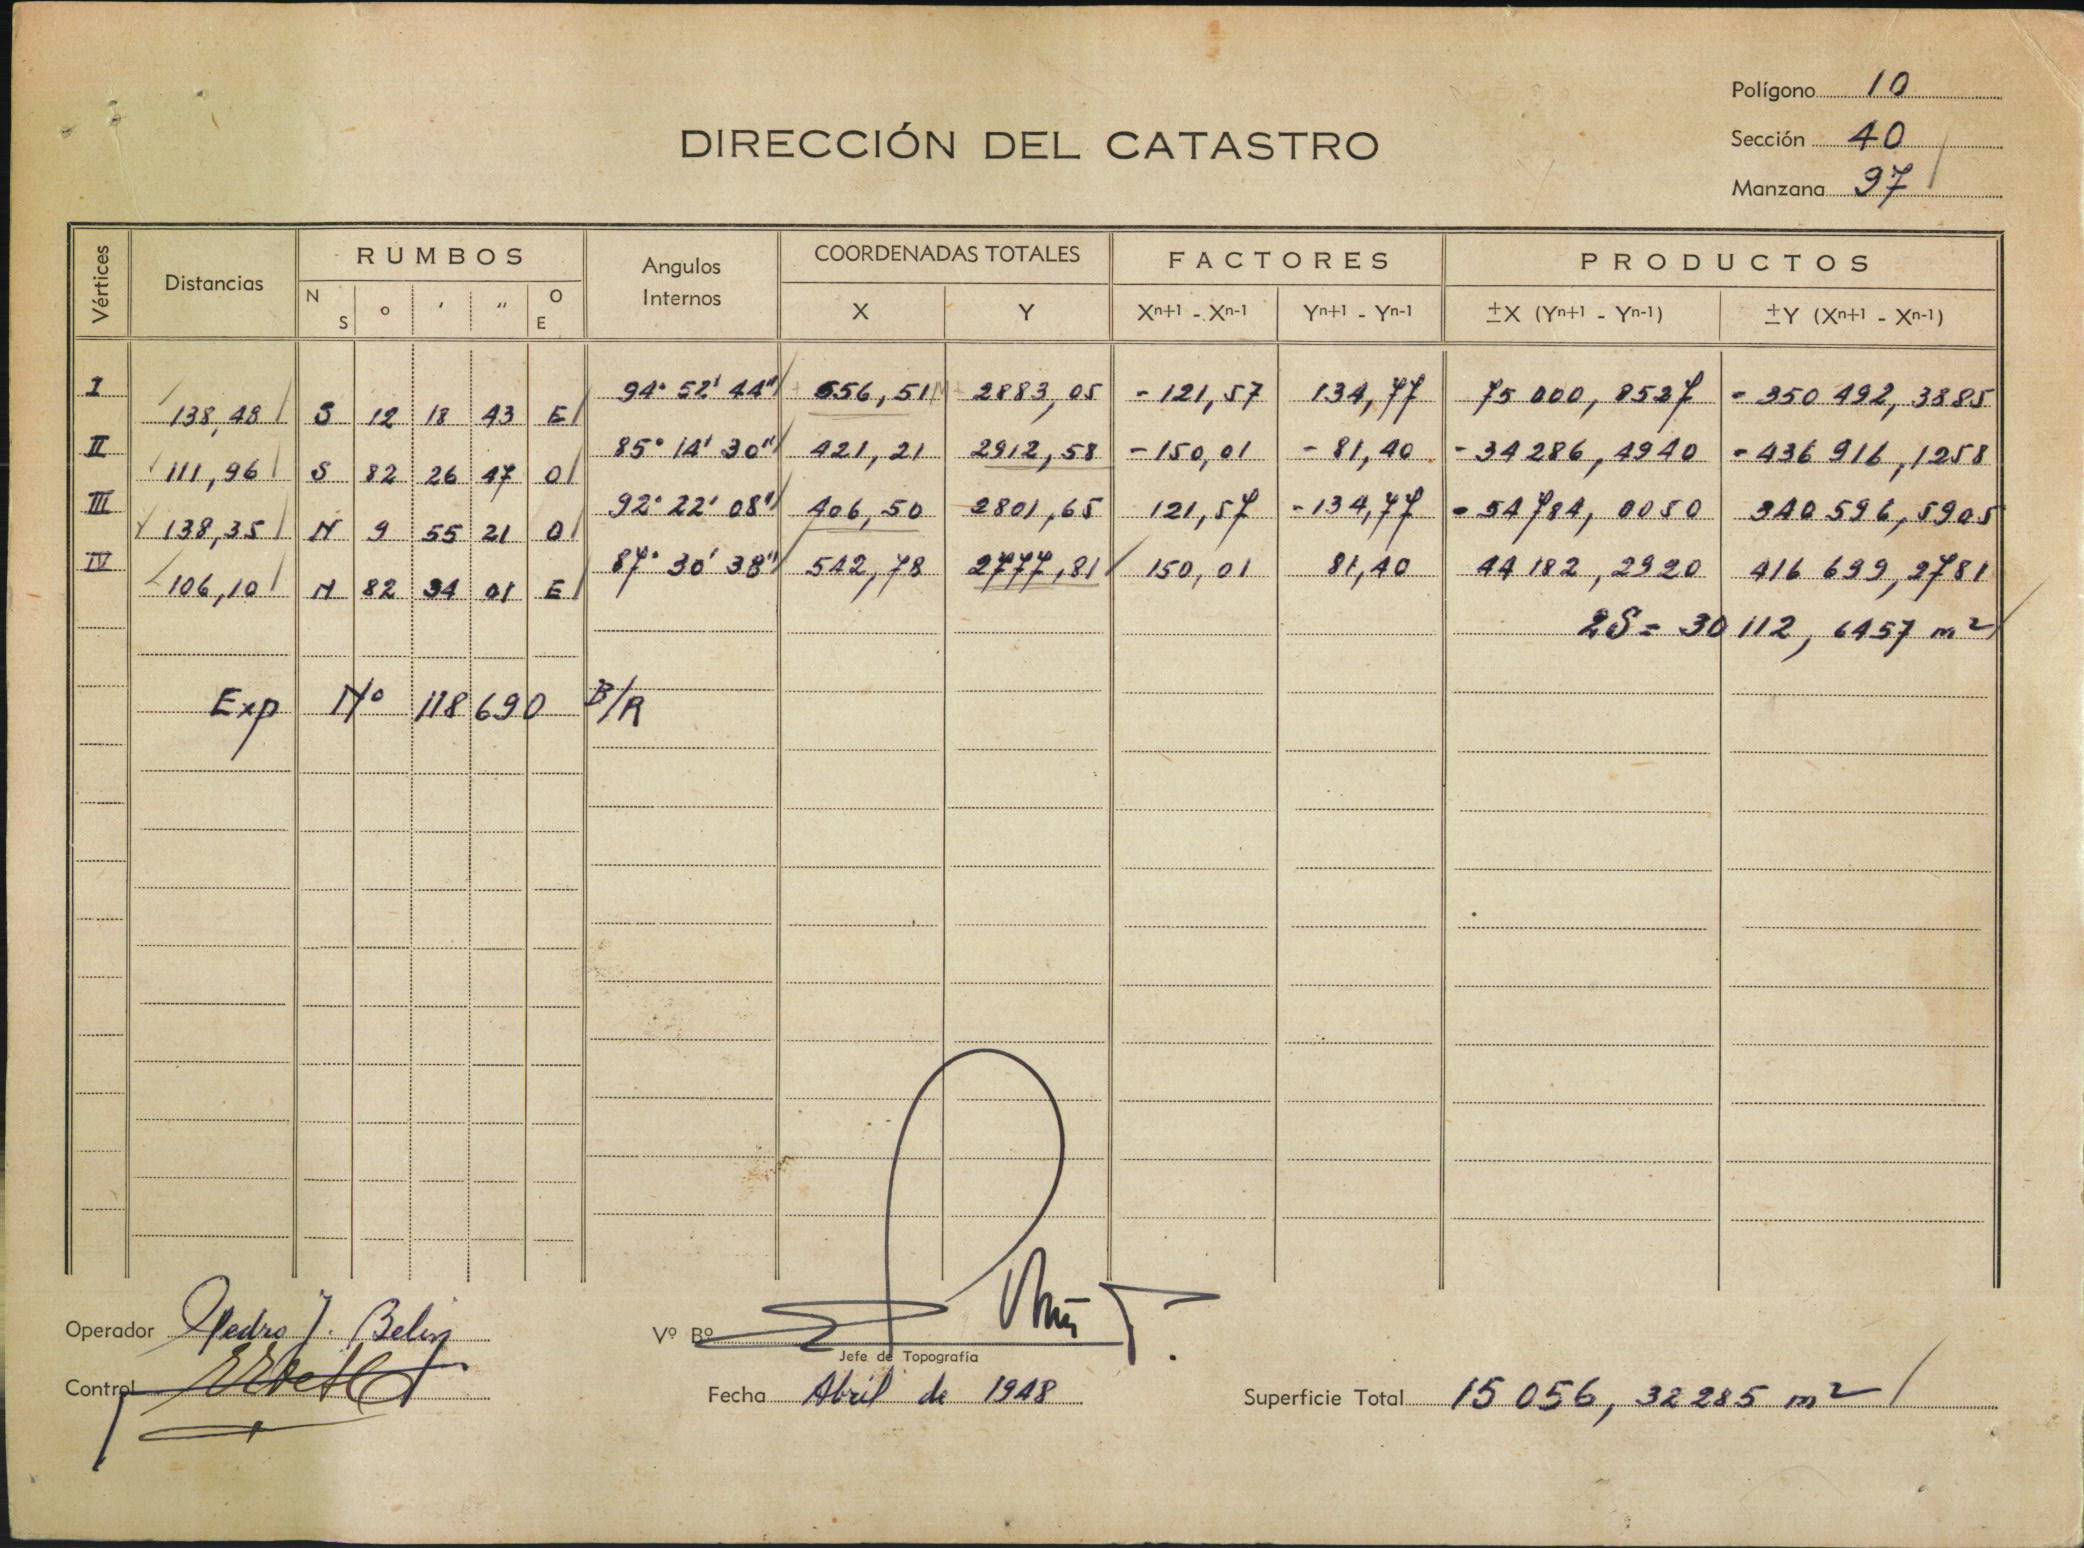 Polígono 10
DIRECCIÓN DEL CATASTRO
Sección 40
Manzana 97
Vértices Distancias RUMBOS Angulos Internos COORDENADAS TOTALES FACTORES PRODUCTOS
N S ° ' " O E X Y Xn+1 - Xn-1 Yn+1 - Yn-1 ±X (Yn+1 - Yn-1) ±Y (Xn+1 - Xn-1)
I 94° 52' 44" 556,51 2883,05 -121,57 134,77 75 000,8527 -350 492,3885
138,48 S 12 18 43 E
II 85° 14' 30" 421,21 2912,58 -150,01 -81,40 -34 286,4940 -436 916,1258
111,96 S 82 26 47 O
III 92° 22' 08" 406,50 2801,65 121,57 -134,77 -54 784,0050 340 596,5905
138,35 N 9 55 21 O
IV 87° 30' 38" 542,78 2777,81 150,01 81,40 44 182,2920 416 699,2781
106,10 N 82 34 01 E
2S = 30 112,6457 m²
Exp Nº 118690 B/R
Operador Pedro J. Belin
Vº Bº
Jefe de Topografía
Control
Fecha Abril de 1948
Superficie Total 15 056,32285 m²